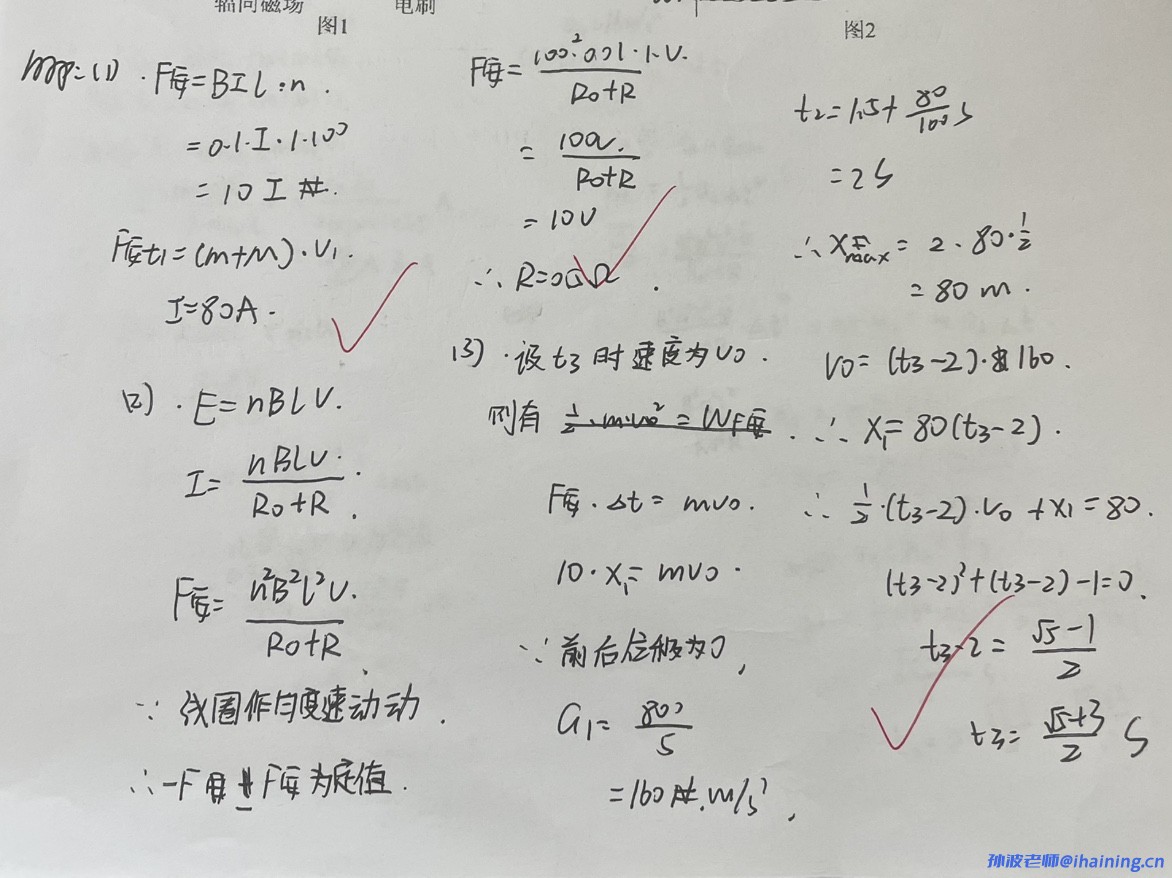 辐向磁场
电刷
图1
图2
解:(1)·F安=BIL·n.
=0.1·I·1·100
=10I N.
F安t1=(m+M)·V1.
I=80A.
(2)·E=nBLV.
I=\frac{nBLV}{R0+R}.
F安=\frac{n²B²l²V}{R0+R}.
∵ 线圈作匀变速动动.
为定值.
F安=\frac{100²·0.01·1·V.}{R0+R}
R0+R
=10V
(3)·设t3时速度为V0.
则有 \frac{1}{2}·m·v0²=WF安.
F安·Δt=mv0.
10·X1=mv0.
∵前后位移为0,
a1=\frac{800}{5}
=160 m/s²,
t2=1.5+\frac{80}{100}s
=2S
=2·80·\frac{1}{2}
=80m.
V0=(t3-2)·160.
∴X1=80(t3-2).
∴\frac{1}{2}·(t3-2)·V0+X1=80.
(t3-2)²+(t3-2)-1=0.
t3-2=\frac{√5-1}{2}
t3=\frac{√5+3}{2}S
孙波老师@ihaining.cn